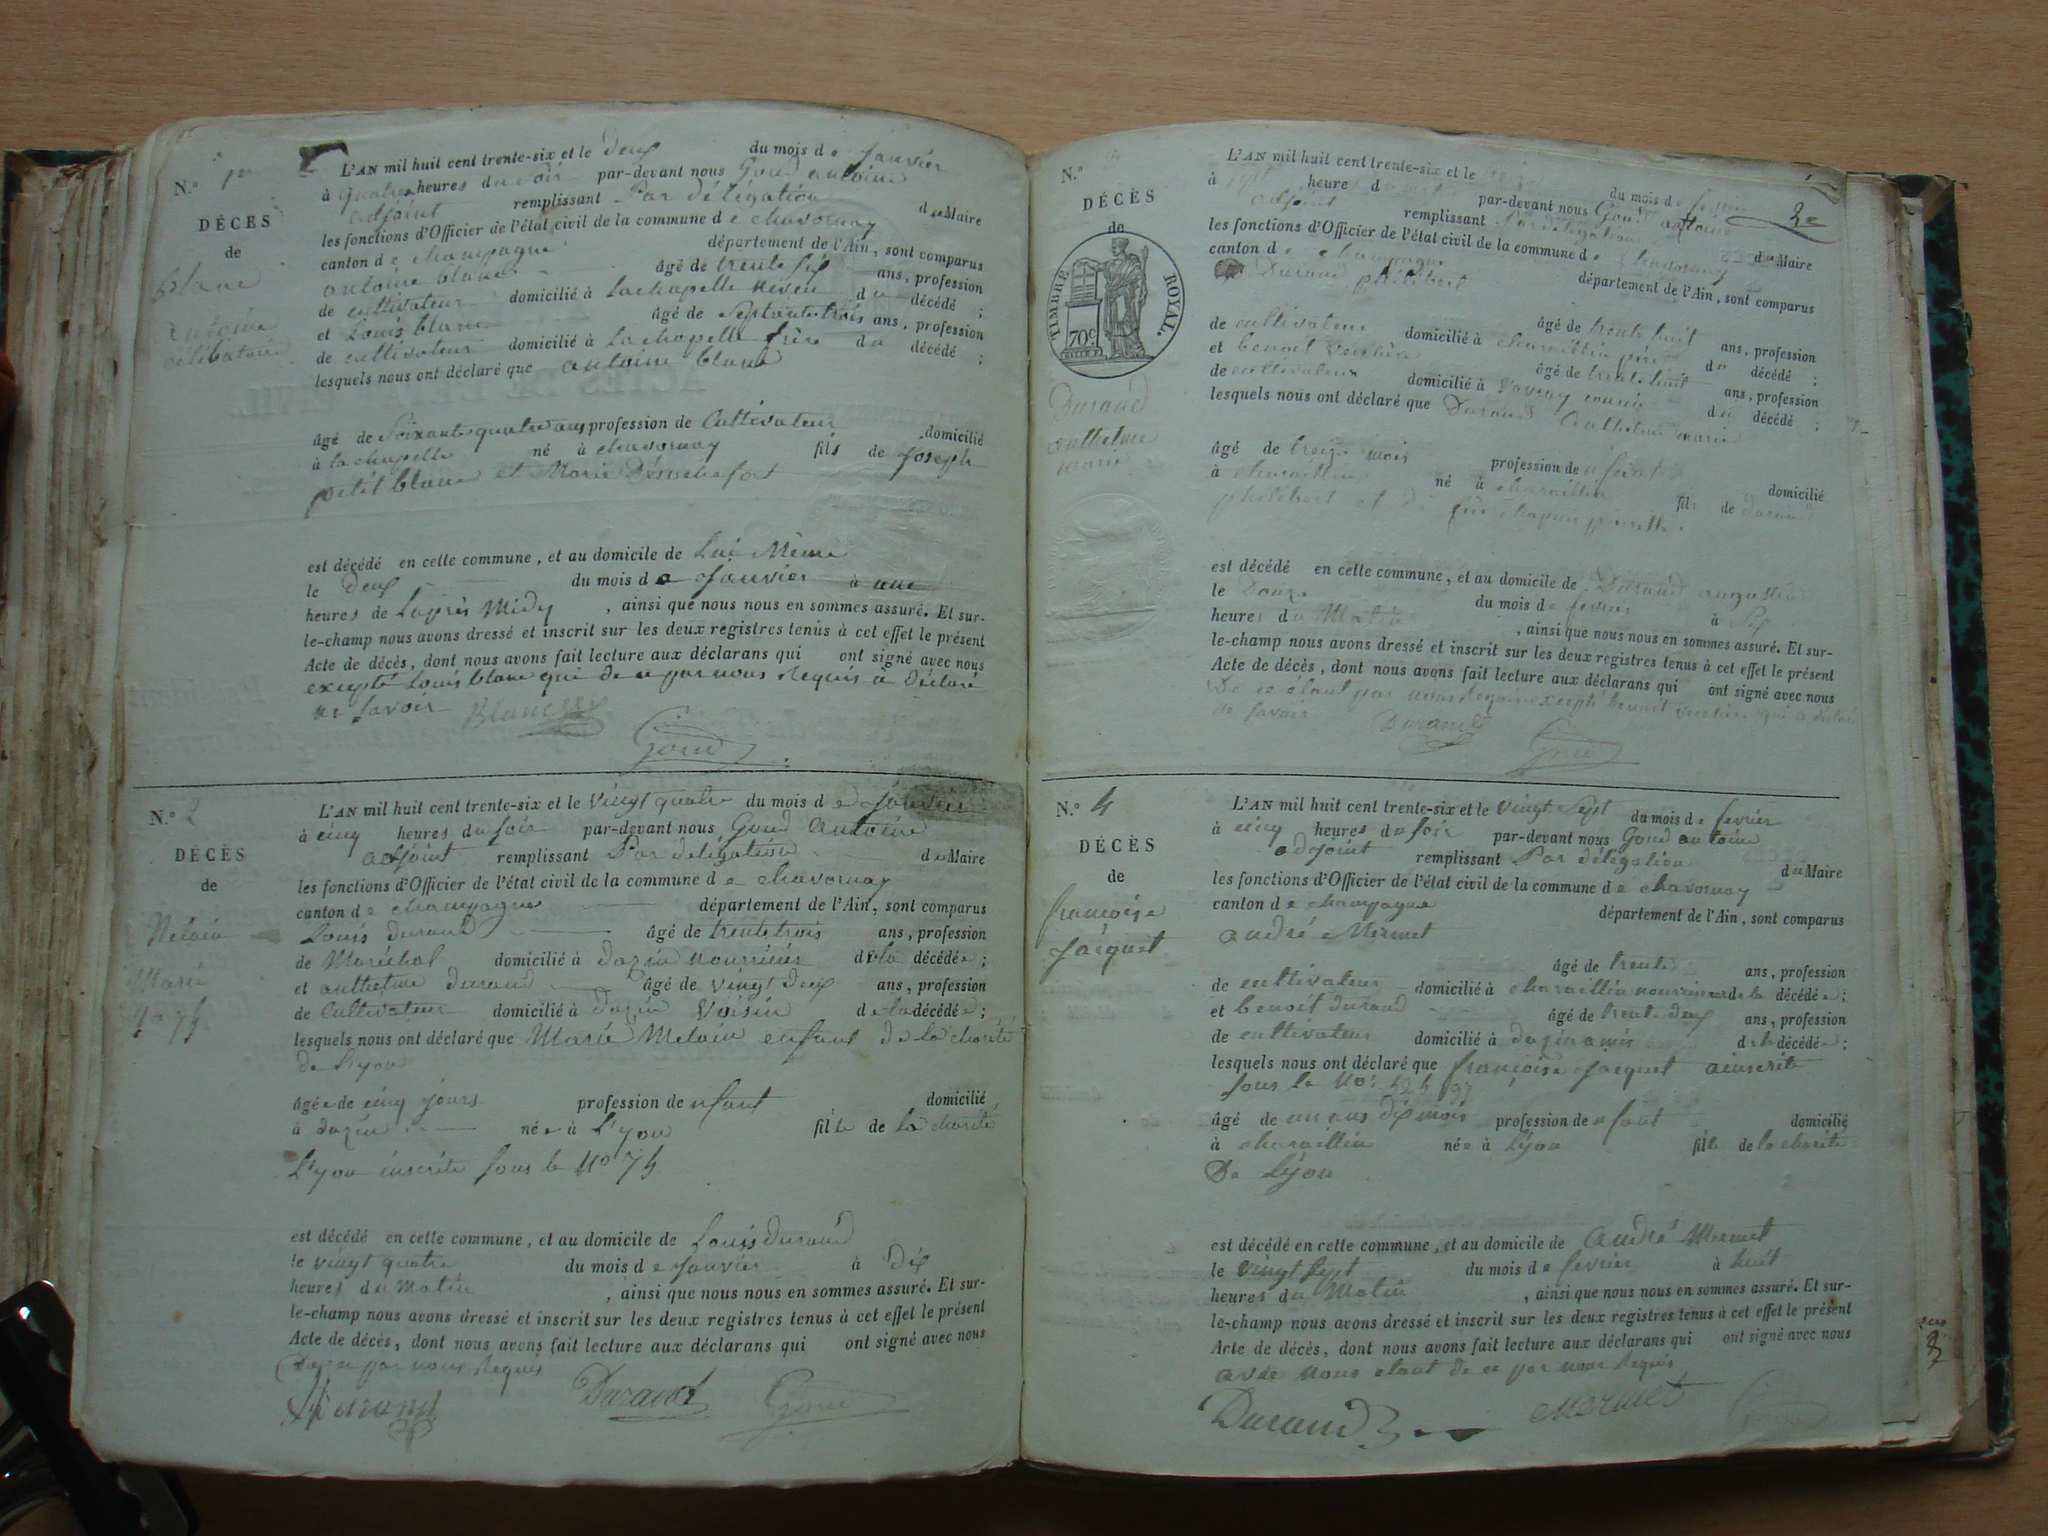 N.º 1er
DÉCÈS
de
blanc
antoine
célibataire
L'AN mil huit cent trente-six et le deux du mois de janvier
à quatre heures du soir par-devant nous Goud antoine
adjoint remplissant Par délégation du Maire
les fonctions d'Officier de l'état civil de la commune de chavornay
canton de champagne département de l'Ain, sont comparus
antoine blanc âgé de trente six ans, profession
de cultivateur domicilié à Lachapelle neveu du décédé ;
et Louis blanc âgé de Septante trois ans, profession
de cultivateur domicilié à Lachapelle frère du décédé ;
lesquels nous ont déclaré que antoine blanc
âgé de Soixante quatre ans profession de Cultivateur domicilié
à la chapelle né à chavornay fils de joseph
petit blanc et Marie
est décédé en cette commune, et au domicile de Lui Même
le Deux du mois de janvier à une
heures de Laprès Midy, ainsi que nous nous en sommes assuré. Et sur-
le-champ nous avons dressé et inscrit sur les deux registres tenus à cet effet le présent
Acte de décès, dont nous avons fait lecture aux déclarans qui ont signé avec nous
excepté Louis blanc qui de ce par nous Requis à Déclaré
ne savoir Blanc
Goud
N.º 2
DÉCÈS
de
Mélain
Marie
L'AN mil huit cent trente-six et le vingt quatre du mois de janvier
à cinq heures du soir par-devant nous Goud antoine
adjoint remplissant Par delégation du Maire
les fonctions d'Officier de l'état civil de la commune de chavornay
canton de champagne département de l'Ain, sont comparus
Louis durand âgé de trente trois ans, profession
de Maréchal domicilié à dazin nourricier de la décédée ;
et anthelme durand âgé de vingt deux ans, profession
de Cultivateur domicilié à dazin Voisin de la décédée ;
lesquels nous ont déclaré que Marie Melain enfant de la charité
de Lyon
âgée de cinq jours profession de enfant domicilié
à dazin née à Lyon fille de la charité
Lyon inscrite sous le No 74
est décédé en cette commune, et au domicile de Louis durand
le vingt quatre du mois de janvier à dix
heures du Matin, ainsi que nous nous en sommes assuré. Et sur-
le-champ nous avons dressé et inscrit sur les deux registres tenus à cet effet le présent
Acte de décès, dont nous avons fait lecture aux déclarans qui ont signé avec nous
de ce par nous Requis
Durand Durand Goud
N.º
DÉCÈS
de
TIMBRE ROYAL.
70c
Durand
anthelme
marie
2e
L'AN mil huit cent trente-six et le du mois de
à heure d par-devant nous Goud antoine
adjoint remplissant Par délégation du Maire
les fonctions d'Officier de l'état civil de la commune de chavornay
canton de champagne département de l'Ain, sont comparus
Durand philibert âgé de trente huit ans, profession
de cultivateur domicilié à charaillin père du décédé ;
et benoit âgé de trente huit ans, profession
de cultivateur domicilié à cousin du décédé ;
lesquels nous ont déclaré que Durand anthelme marie
âgé de mois profession de enfant domicilié
à charaillin né à charaillin fils de durand
philibert et de
est décédé en cette commune, et au domicile de Durand augustin
le Douze du mois de fevrier à Six
heures du Matin, ainsi que nous nous en sommes assuré. Et sur-
le-champ nous avons dressé et inscrit sur les deux registres tenus à cet effet le présent
Acte de décès, dont nous avons fait lecture aux déclarans qui ont signé avec nous
De ce étant par nous Requis excepté benoit qui a déclaré
ne savoir Durand Goud
N.º 4
DÉCÈS
de
francoise
Jacquet
L'AN mil huit cent trente-six et le vingt Sept du mois de fevrier
à cinq heures du soir par-devant nous Goud antoine
adjoint remplissant Par délégation du Maire
les fonctions d'Officier de l'état civil de la commune de chavornay
canton de champagne département de l'Ain, sont comparus
andré Mermet âgé de trente ans, profession
de cultivateur domicilié à charaillin nourricier de la décédée ;
et benoit durand âgé de trente deux ans, profession
de cultivateur domicilié à dazin amis de la décédée ;
lesquels nous ont déclaré que françoise jacquet
sous le No:
âgé de un ans dix mois profession de enfant domicilié
à charaillin née à Lyon fille de la charité
De Lyon
est décédé en cette commune, et au domicile de andré Mermet
le vingt Sept du mois de fevrier à huit
heures du Matin, ainsi que nous nous en sommes assuré. Et sur-
le-champ nous avons dressé et inscrit sur les deux registres tenus à cet effet le présent
Acte de décès, dont nous avons fait lecture aux déclarans qui ont signé avec nous
avec nous etant de ce par nous Requis
Durand Mermet